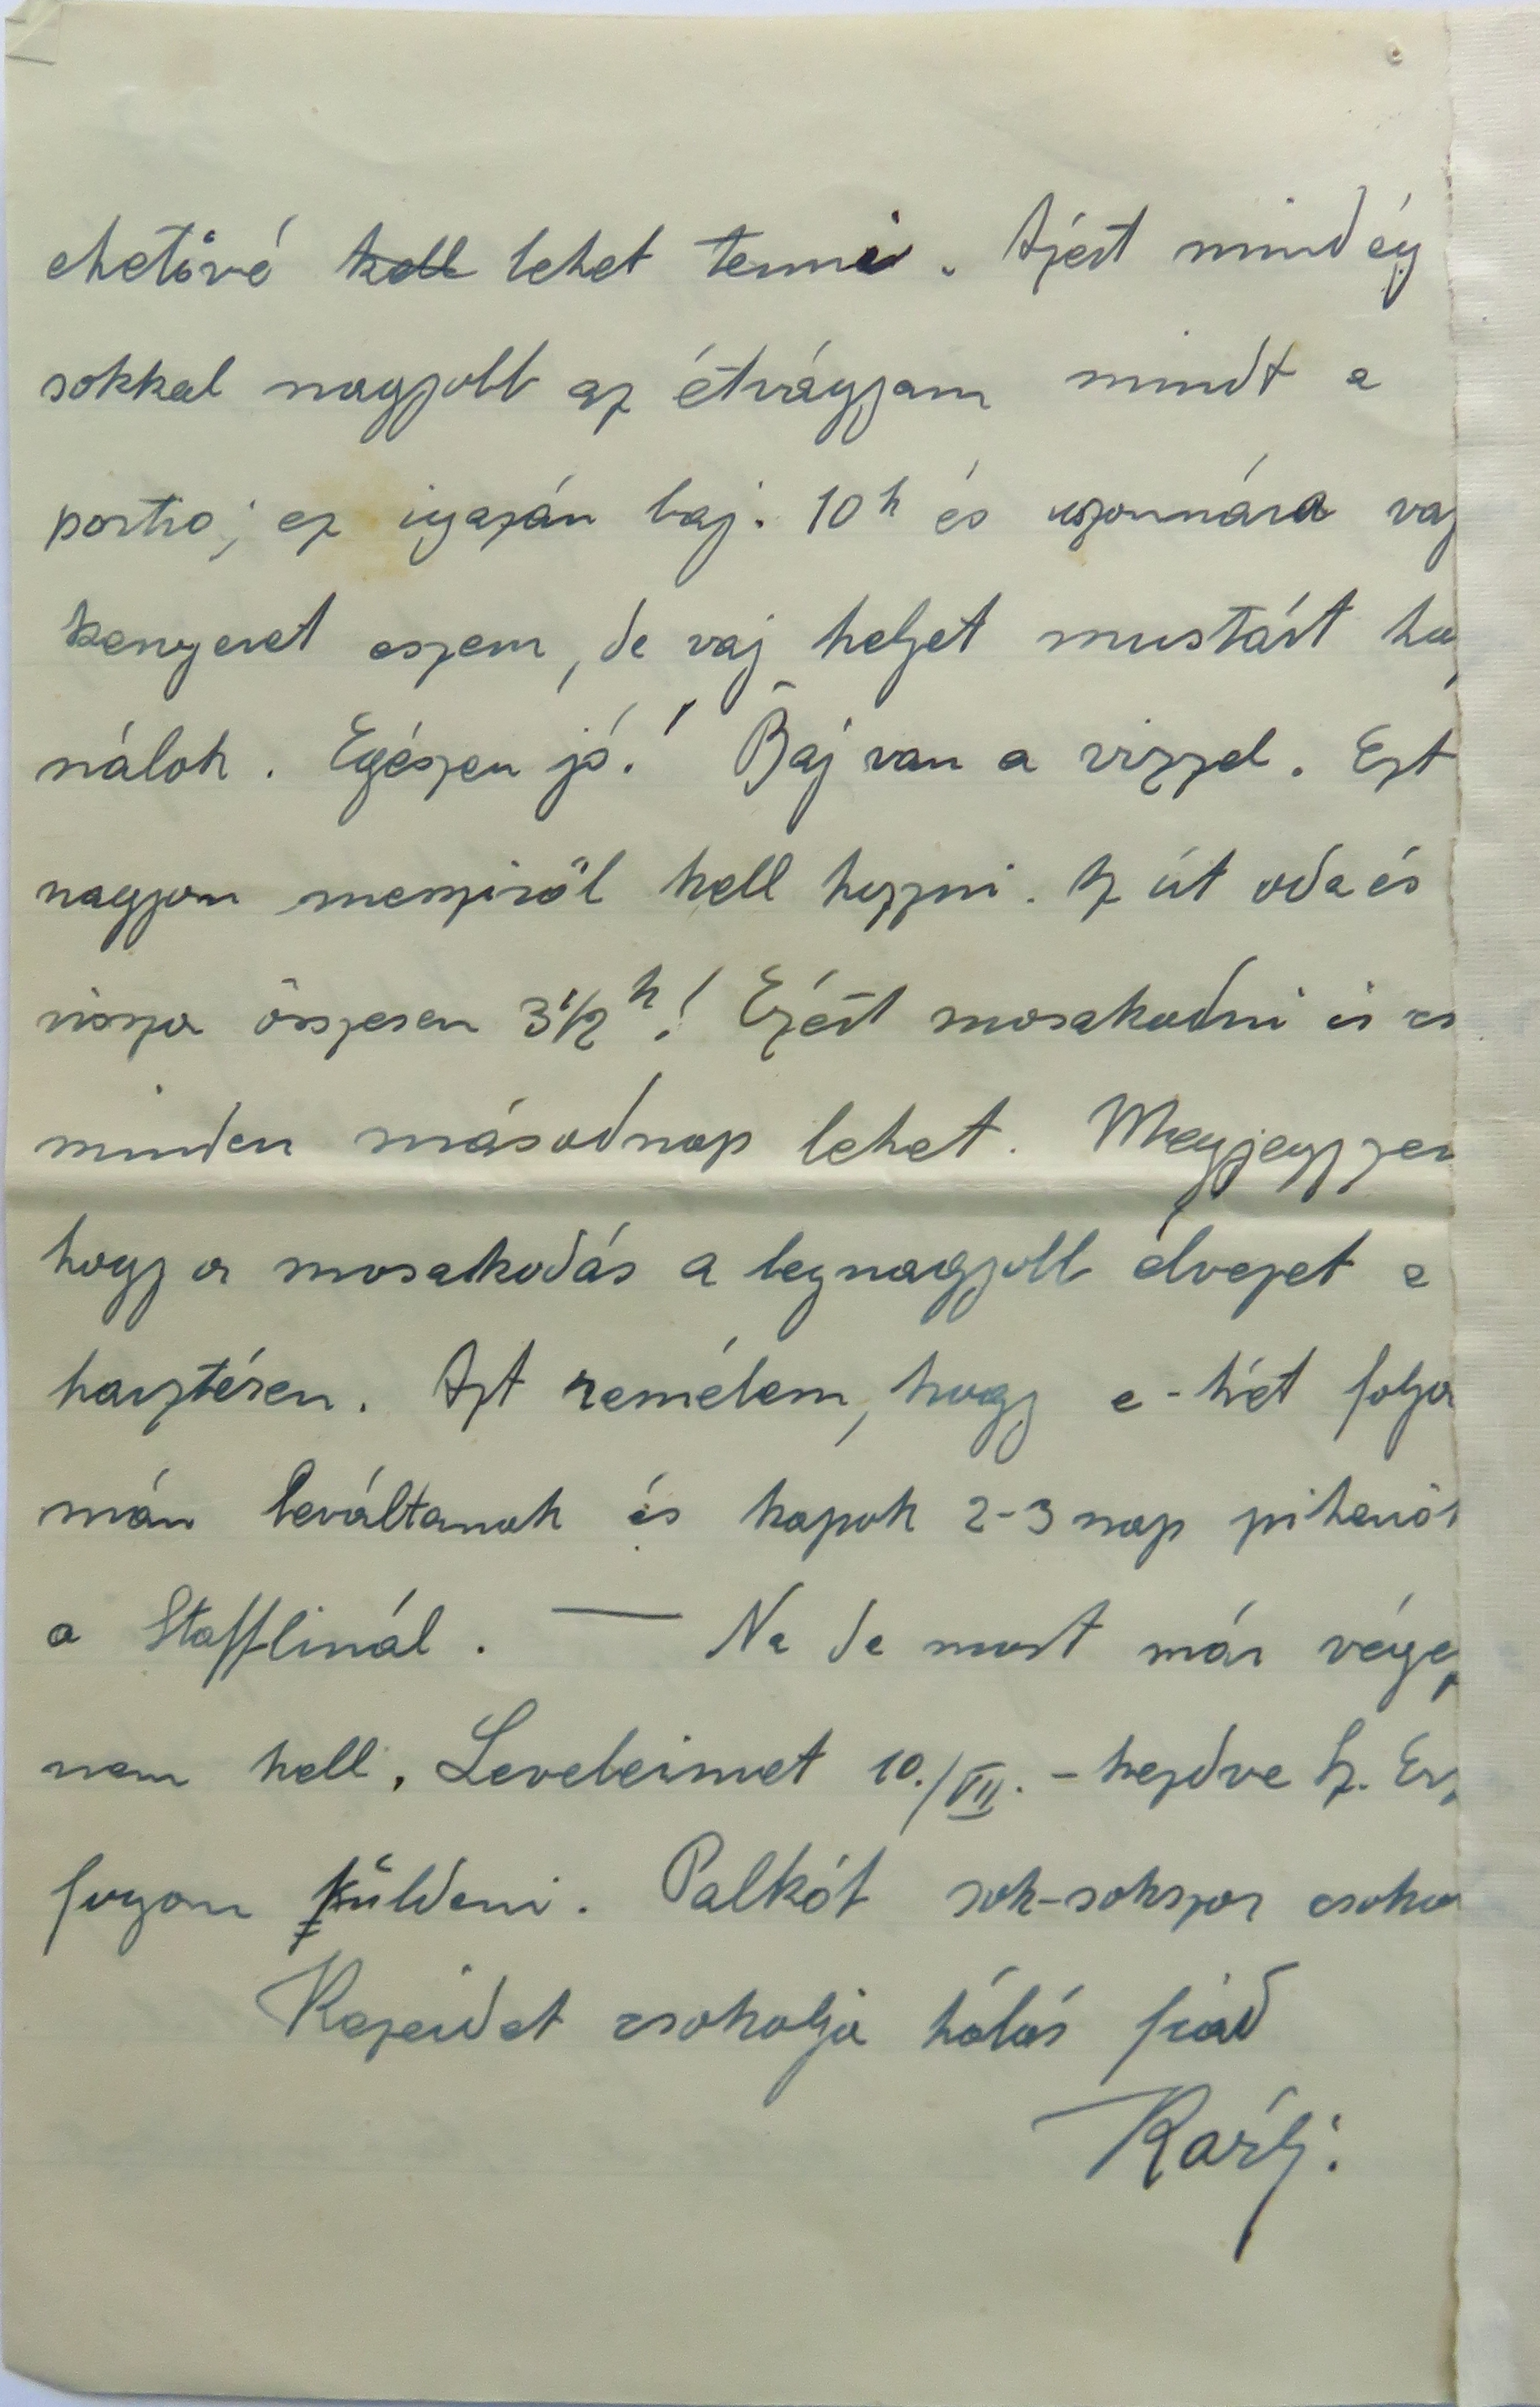 ehetővé ~~kell~~ lehet tenni. Azért mindég
sokkal nagyobb az étvágyam mindt a
portio; ez igazán baj. 10h és uzsonnára vaj
kenyeret eszem, de vaj helyet mustárt hasz
nálok. Egészen jó! Baj van a vizzel. Ezt
nagyon messziről kell hozni. Az út oda és
vissza összesen 3½ h! Ezért mosakodni is cs
minden másodnap lehet. Megjegyzen
hogy a mosakodás a legnagyobb élvezet a
harztéren. Azt remélem, hogy e-hét folya
mán leváltanak és kapok 2-3 nap pihenőt
a Stafflinál. — Na de most már végez
nem kell. Leveleimet 10./VII. - kezdve
fogom küldeni. Palkót sok-sokszor csoko
Kezeidet csokolja hálás fiad
Karly.